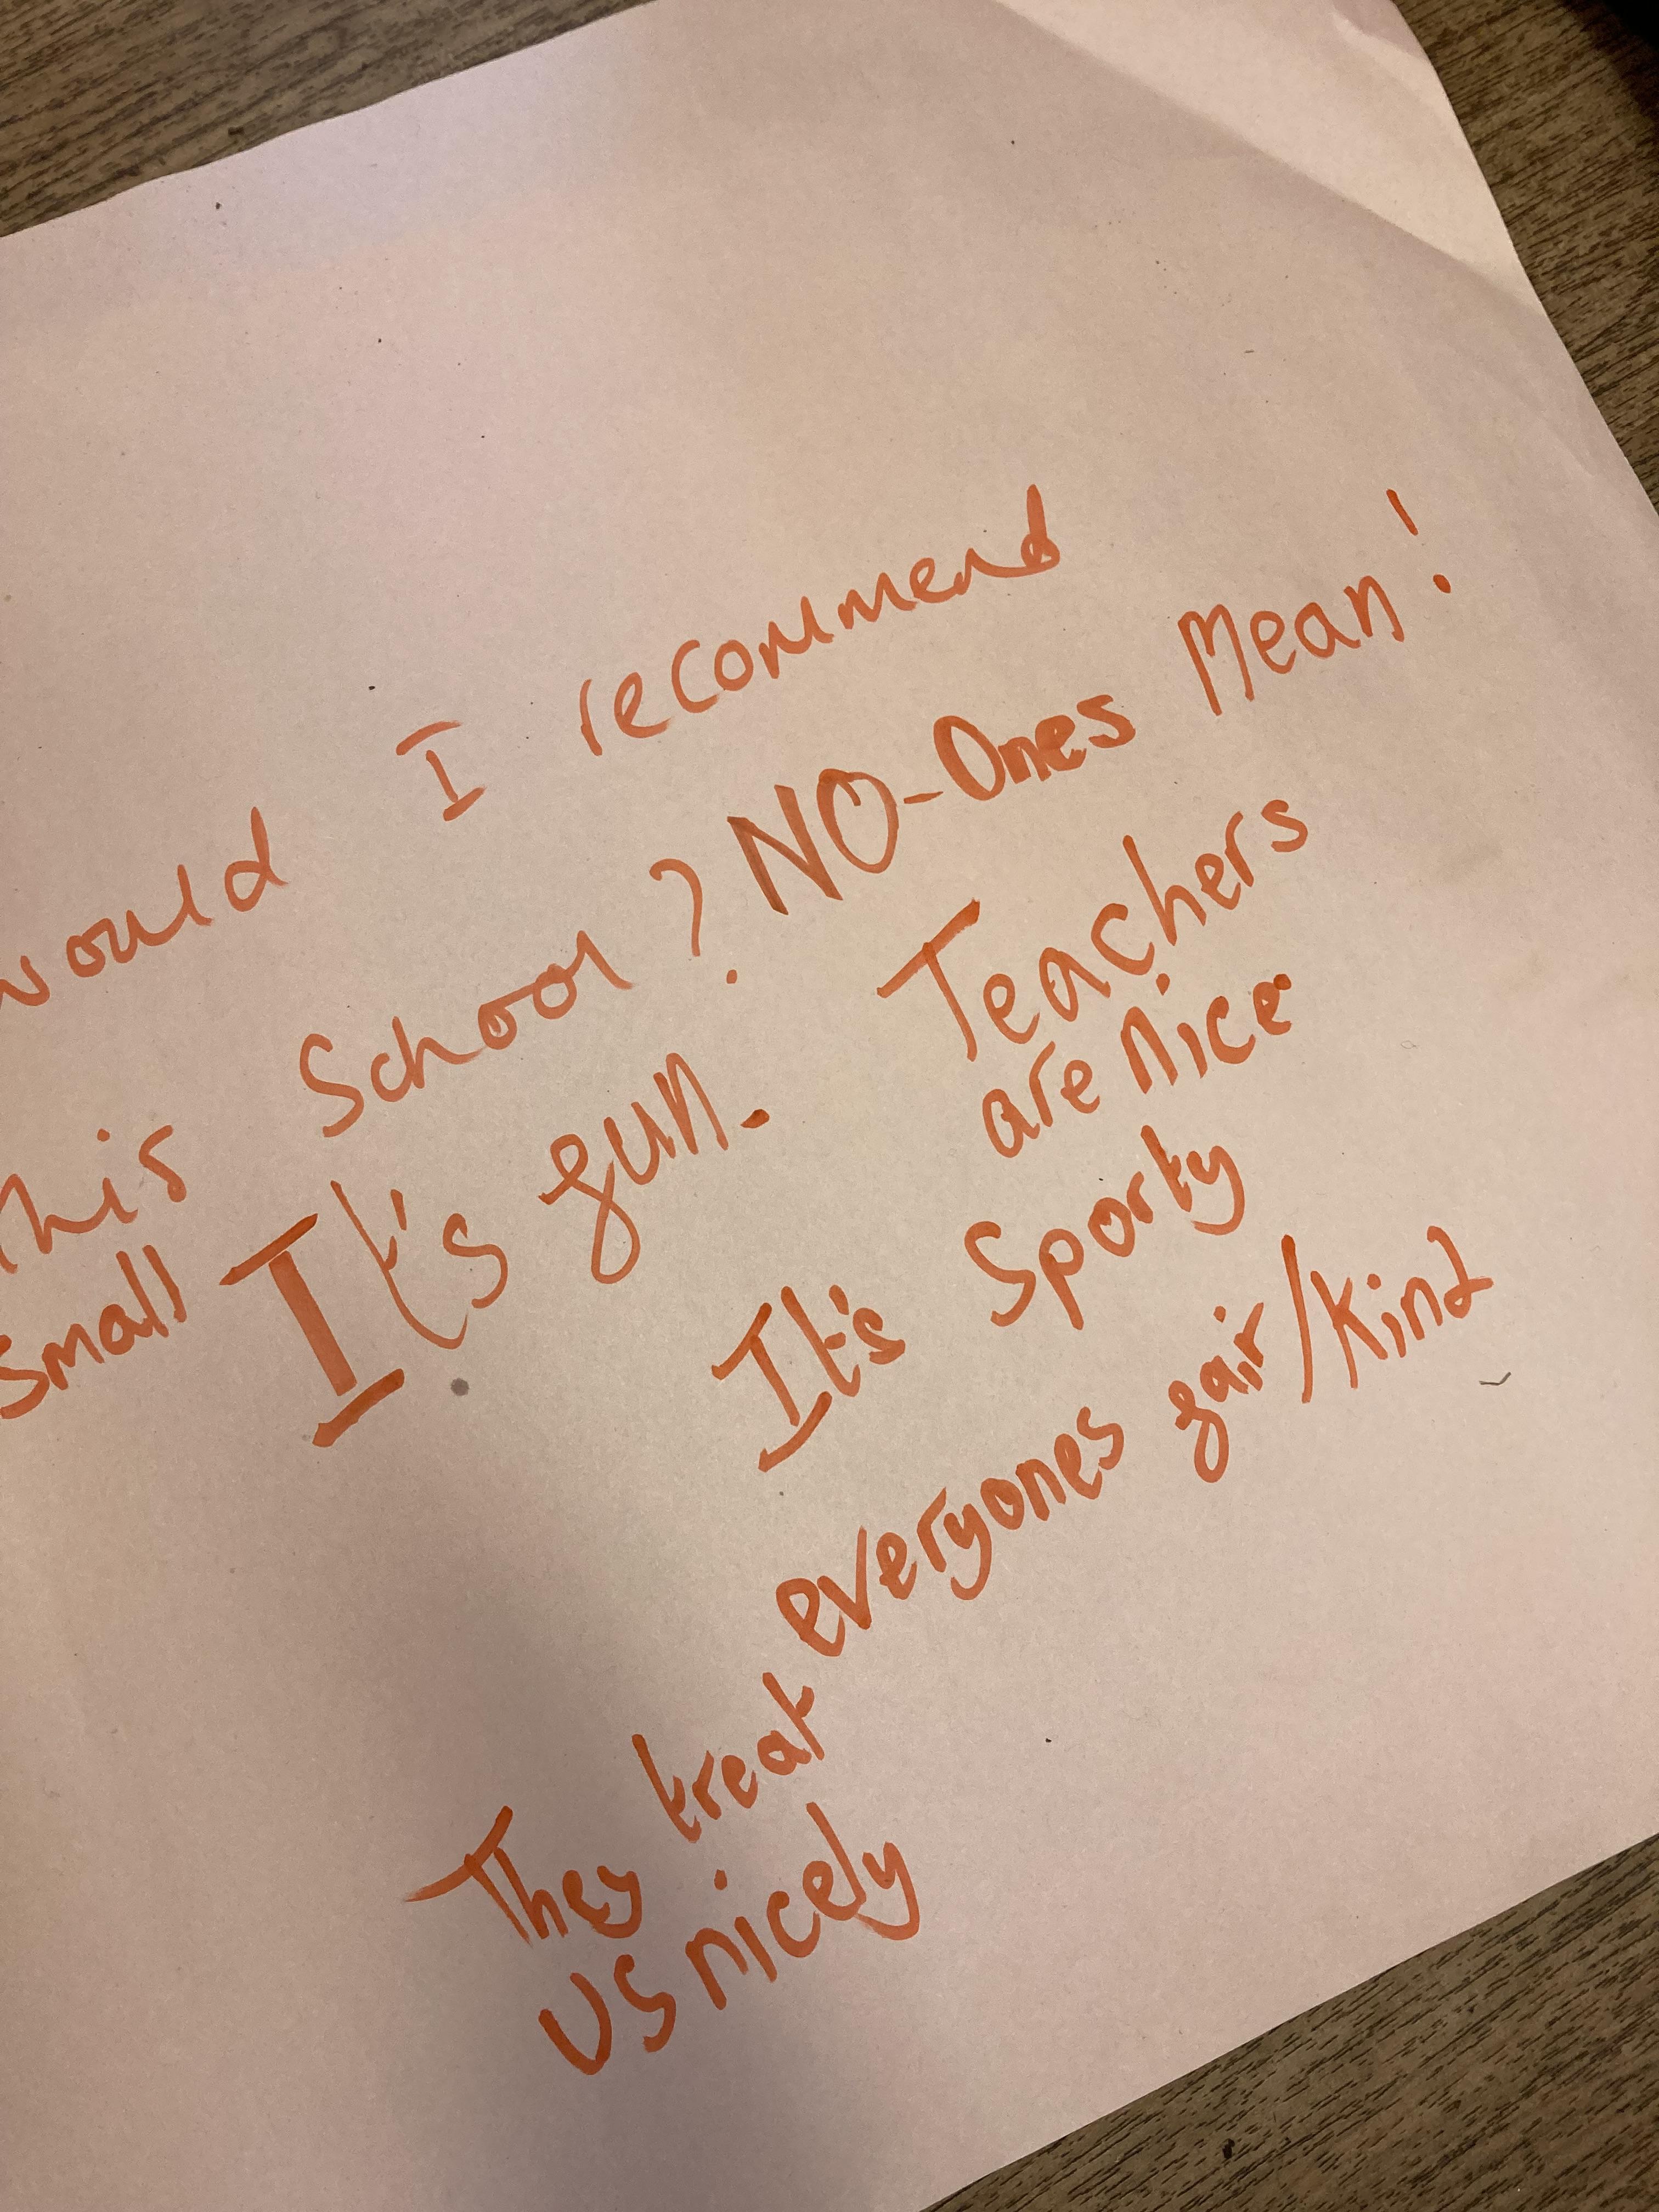 would I recommend
this School?
NO-Ones Mean!
small
It's fun.
Teachers
are nice
It's Sporty
everyones fair/kind
They treat
us nicely